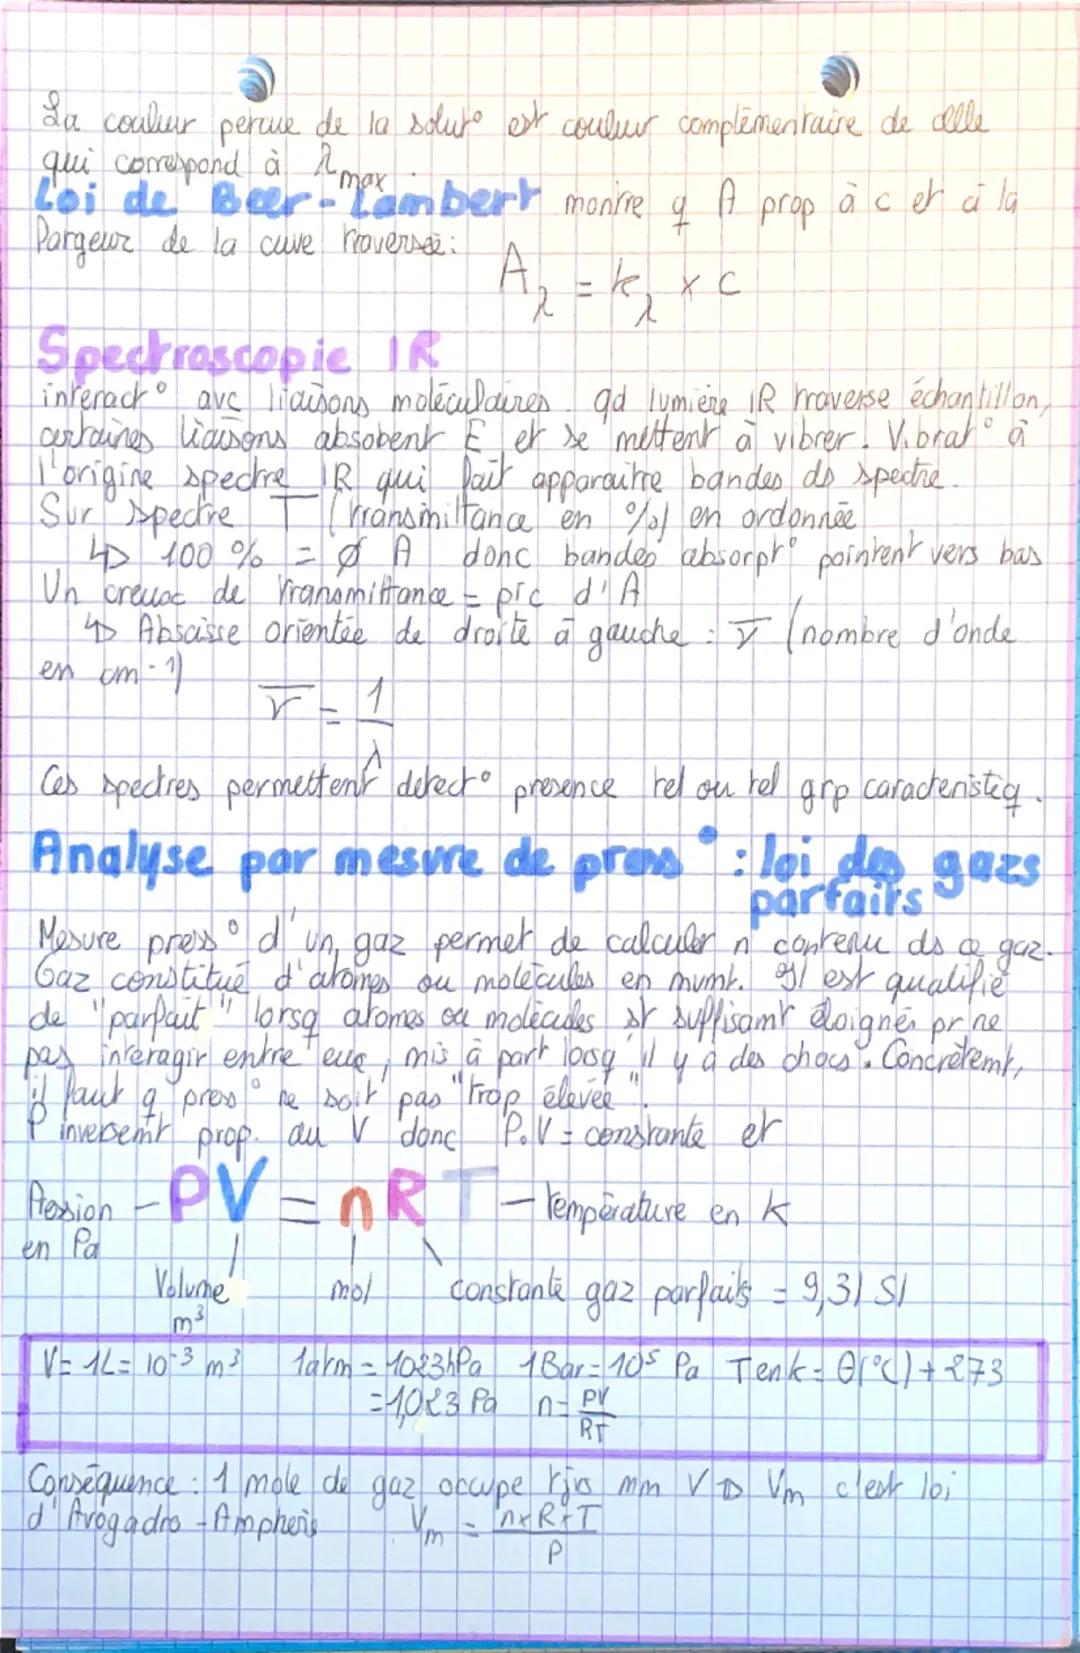 La couleur percue de la solut° est couleur complémentaire de celle
qui correspond à λmax.
Loi de Beer-Lambert montre q A prop à c et à la
largeur de la cuve traversée :
Aλ = kλ × C
Spectroscopie IR
interact° avc liaisons moléculaires. qd lumière IR traverse échantillon,
certaines liaisons absobent E et se mettent à vibrer. Vibrat° à
l'origine spectre IR qui fait apparaitre bandes ds spectre.
Sur spectre T (transmittance en %) en ordonnée
↳ 100 % = Ø A donc bandes absorpt° pointent vers bas
Un creux de transmittance = pic d'A
↳ Abscisse orientée de droite à gauche : ν̅ (nombre d'onde
en cm-1)
ν̅ = 1/λ
Ces spectres permettent detect° presence tel ou tel grp caracteristiq.
Analyse par mesure de press° : loi des gazs
parfaits
Mesure press° d'un gaz permet de calculer n contenu ds ce gaz.
Gaz constitué d'atomes ou molécules en mvmt. Il est qualifié
de "parfait" lorsq atomes ou molécules st suffisamt éloignés pr ne
pas interagir entre eux, mis à part lorsq'il y a des chocs. Concrètemt,
il faut q press° ne soit pas "trop élevée".
P inversemt prop. au V donc P.V = constante et
PV = nRT – température en K
Pression
en Pa
Volume
m³
mol
constante gaz parfaits = 9,31 SI
V= 1L= 10-3 m³ 1atm = 1023hPa 1Bar = 10⁵ Pa T en k = θ(°C) + 273
=1,023 Pa n= PV/RT
Conséquence : 1 mole de gaz occupe tjrs mm V ⇨ Vm c'est loi
d'Avogadro - Ampheré Vm = n×R×T/P